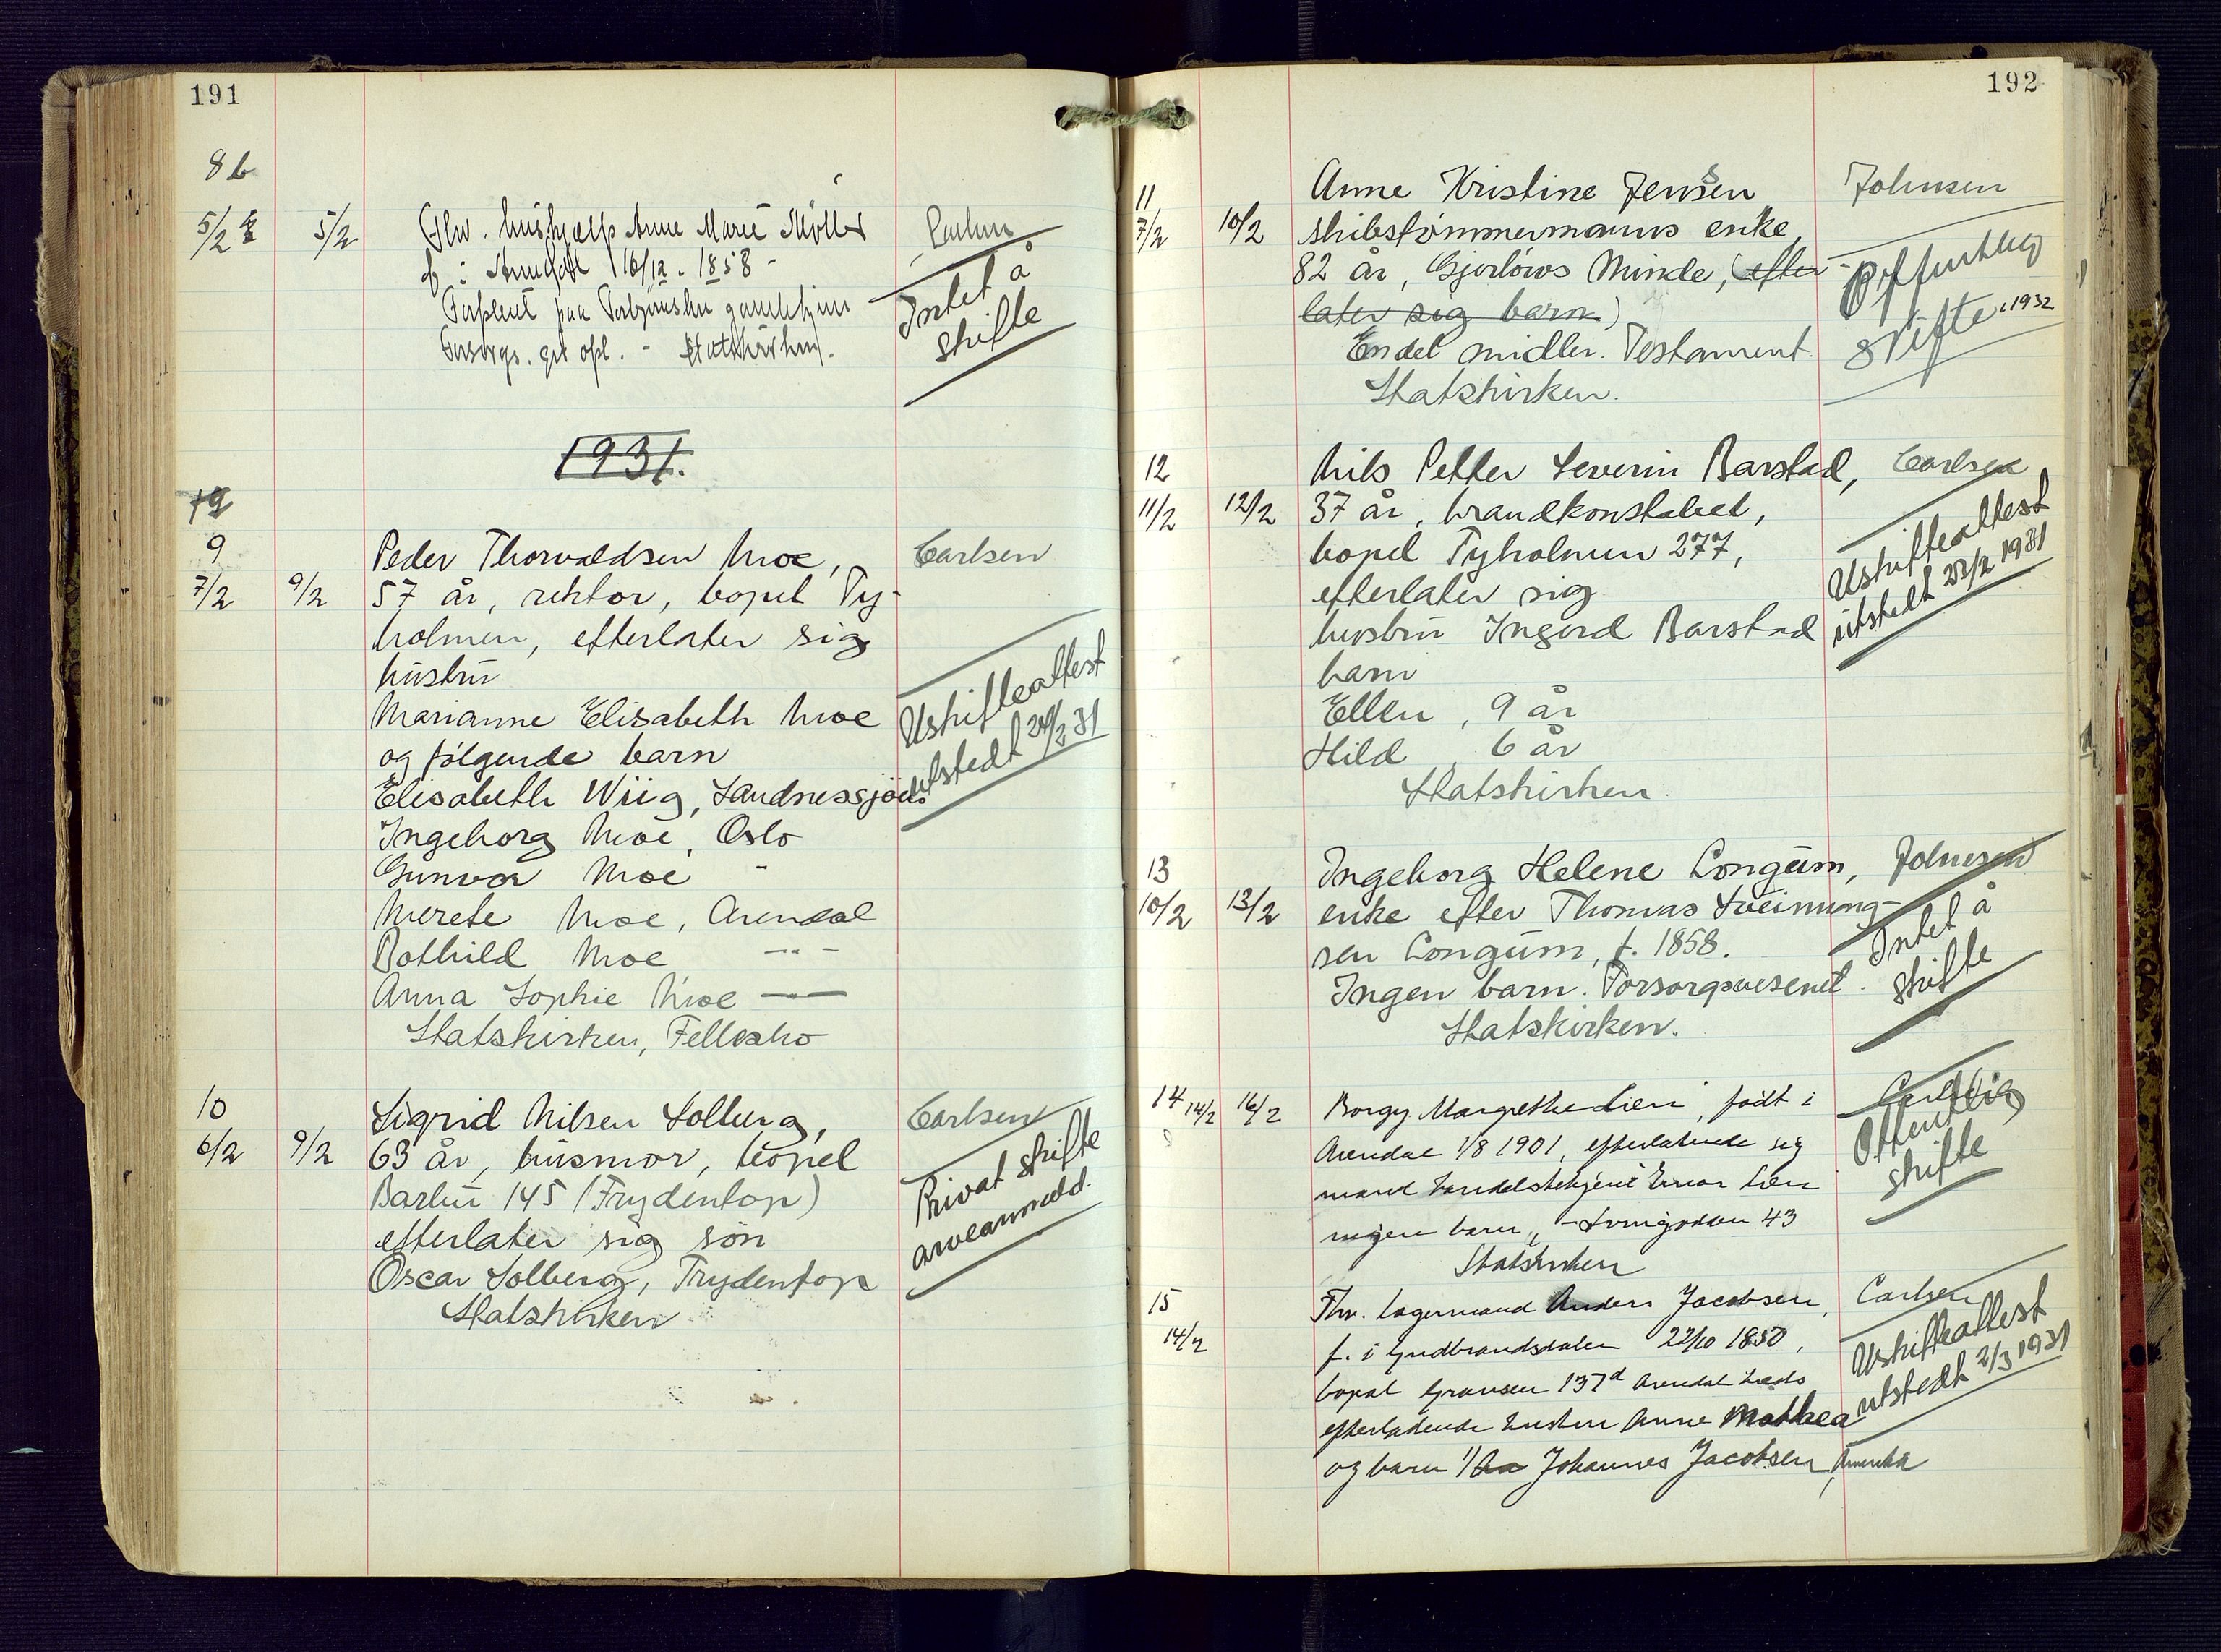 191
8b
5/2
5/2
Anne Marie Møller
Carlsen
f. i Arendal 16/12 - 1858 -
Intet å
skifte
paa gamlehjem
Forsorgs. Statskirken.
1931.
9
Peder Thorvaldsen Moe,
Carlsen
7/2
9/2
57 år, rektor, bopel Ty-
holmen, efterlater sig
hustru
Marianne Elisabeth Moe
Uskifteattest
utstedt 24/2 31
og følgende barn
Elisabeth Wiig, Sandnessjøen
Ingeborg Moe, Oslo
Gunvor Moe "
Merete Moe, Arendal
Bothild Moe —"—
Anna Sophie Moe —"—
Statskirken, Fellesbo
10
Sigrid Nilsen Solberg,
Carlsen
6/2
9/2
63 år, husmor, bopel
Privat skifte
arveanmeld.
Barbu 145 (Frydentop)
efterlater sig søn
Oscar Solberg, Frydentop
Statskirken
192
11
Anne Kristine Jensen
Johnsen
7/2
10/2
skibstømmermanns enke,
82 år, Gjerløws Minde, (efter-
Offentlig
skifte 1932
later sig barn)
Endel midler. Testament.
Statskirken.
12
Nils Petter Severin Barstad,
Carlsen
11/2
12/2
37 år, brandkonstabel,
bopel Tyholmen 277,
Uskifteattest
utstedt 23/2 1931
efterlater sig
hustru Ingerd Barstad
barn
Ellen, 9 år
Hild, 6 år
Statskirken.
13
Ingeborg Helene Longum,
Johnsen
10/2
13/2
enke efter Thomas Sveinung-
sen Longum, f. 1858.
Intet å
skifte
Ingen barn. Forsorgsvesenet.
Statskirken.
14
14/2
16/2
Borgy Margrethe Lien, født i
Carlsen
Arendal 1/8 1901, efterlatende sig
Offentlig
skifte
mand handelsbetjent Einar Lien
ingen barn, - 43
Statskirken
15
Fhv. lagermand Anders Jacobsen,
Carlsen
14/2
f. i Gudbrandsdalen 22/10 1850,
Uskifteattest
utstedt 2/3 1931
bopæl Grønsen 137d Arendal
efterlatende hustru Anne Mathea
og barn 1) Johannes Jacobsen, Amerika